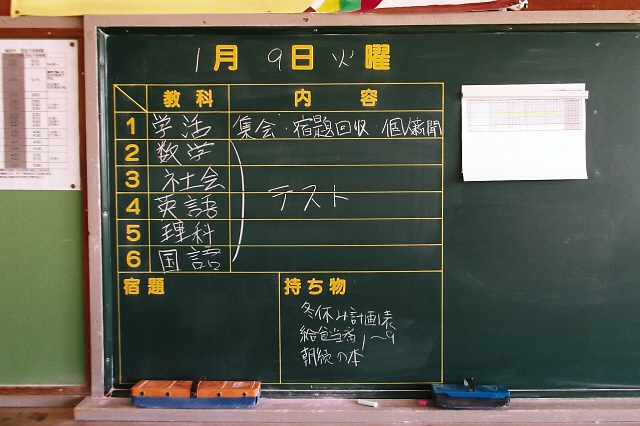 1月 9日 火曜
教科 内容
1 学活 集会・宿題回収・個人新聞
2 数学
3 社会
4 英語 テスト
5 理科
6 国語
宿題
持ち物
冬休み計画表
給食当番 1〜9
朝読の本